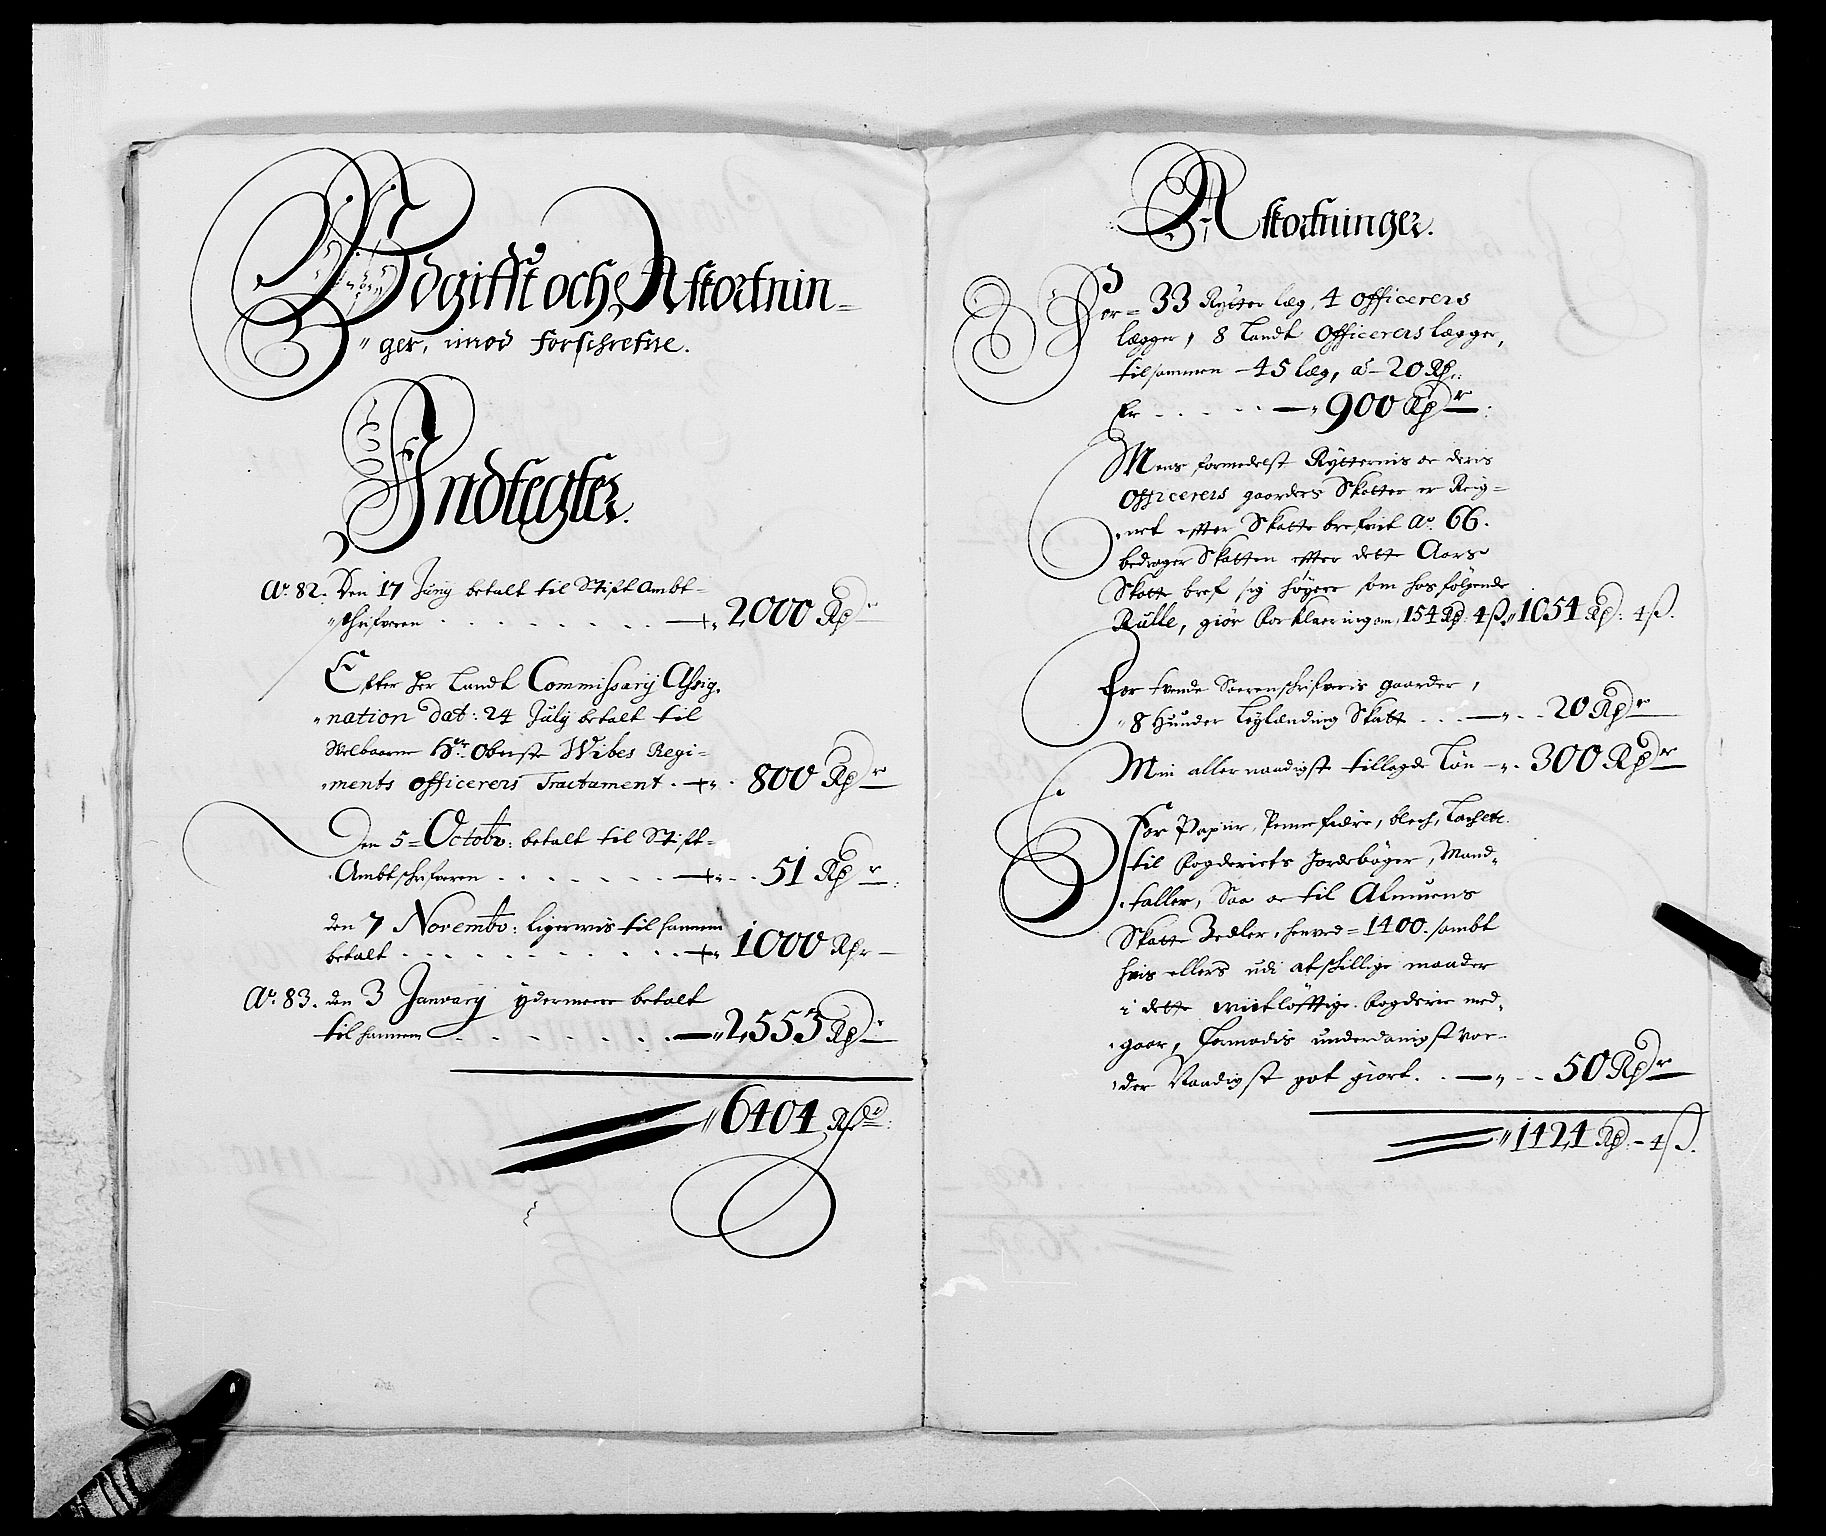 Udgifft och Affkortnin=
ger, imod forschrefne.
Indtegter.
Ao: 82. Den 17 Junij betalt til Stift Ambt=
schrifveren 2000 Rdr
Efter Her Landt Commissarij Assig,
nation dat: 24 Julij betalt til
Welbaarne Hr: Oberste Wibes Regi=
ments officerers Tractament 800 Rdr
Den 5= Octobr: betalt til Stift=
Ambtschrifveren 51 Rdr
den 7 Novembr: ligerwis til hannem
betalt 1000 Rdr
Ao: 83. den 3 Januarij ydermeere betalt
til hannem 2553 Rdr
6404 Rdr
Affkortninger.
For= 33 Rytter læg, 4 officerers
lægger, 8 Landt Officerers lægger,
tilsammen 45 læg, a 20 Rd:
Er 900 Rdr:
Mens formedelst Rytternis oc deris
Officerers gaarders Skatter er Reig=
net efter Skatte brefvit Ao. 66.
bedrager Skatten effter dette Aars
Skatte bref sig høyere som hosfølgende
Rulle, giør forklaering om, 154 Rd: 4 ß. 1054 Rd: 4 ß.
For tvende Soerenschrifveris gaarder,
8 Hunder Leylænding Skatt 20 Rdr
Min allernaadigst tillagde Løn 300 Rdr
For Papiir, Pennefædre, blech, Lach etc.
til fogderiets Jordebøger, Mand,
taller, Saa oc til Almuens
Skatte Zedler, henved= 1400. sambt
hvis ellers udi atschillige maader
i dette viitløfftige fogderie med,
gaar, formodis underdanigst vor=
der Naadigst got giort. 50 Rdr
1424 Rd: 4 ß.